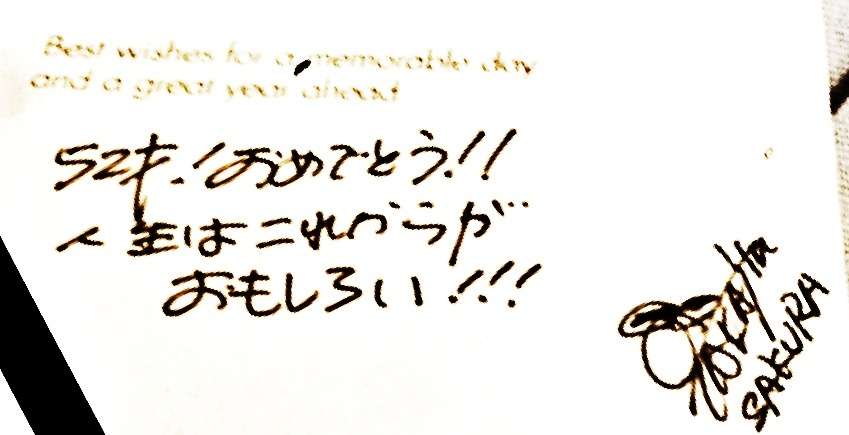 Best wishes for a memorable day
and a great year ahead
52才!おめでとう!!
人生はこれからが
おもしろい!!!
SAKURA